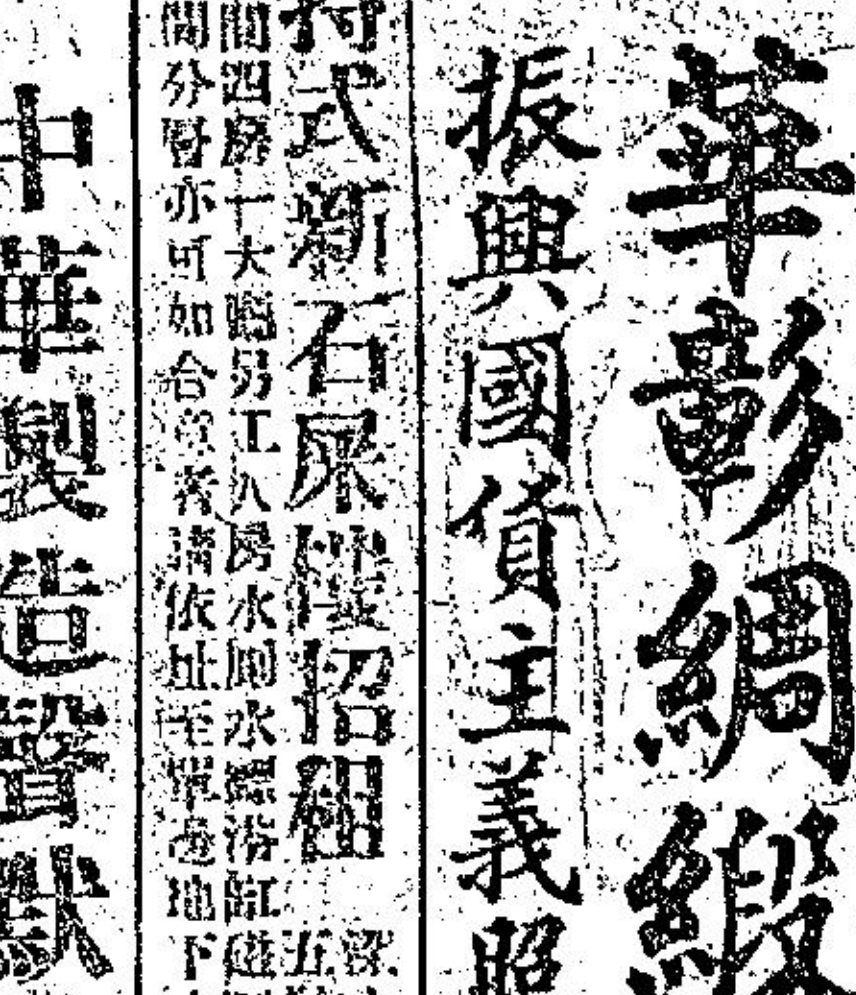 華彰綢緞
振興國貨主義照
式新石屎樓招租
間四房一大廳另工人房水厠水浴缸
間分層亦可如合意者請依址至單邊地下
中華製造